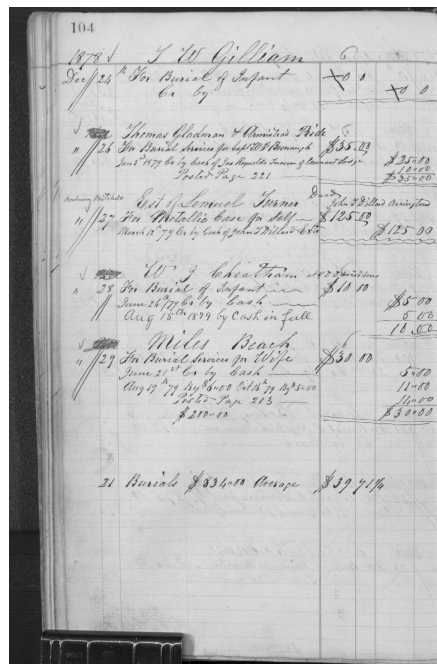 104
1878 T W Gilliam
Dec 24th For Burial of Infant X0 0
Cr by X0 0
Thomas Gladman & Armistead Pride
" 26 For Burial Services for Capt $35.00
Jany 2d 1879 Cr by Cash of Jas Reynolds Treasurer of Lodge $25.00
10.00
Posted Page 221 $35.00
Est of Samuel Turner Dead
John T Dillard
" 27 For Metallic Case for Self $125.00
March 79 Cr by Cash of John T Dillard $125 00
W J Cheatham at Davidsons
" 28 For Burial of Infant $10 00
June 26th/79 Cr by Cash $5 00
Aug 15th 1879 by Cash in full 5 00
10 00
Miles Beach
" 29 For Burial Services for Wife $30 00
June 21st Cr by Cash 5.00
Aug 19th 79 Oct 18th 79 11.00
Posted Page 203 14.00
$20.00 $30.00
21 Burials $834.00 Average $39 71¼